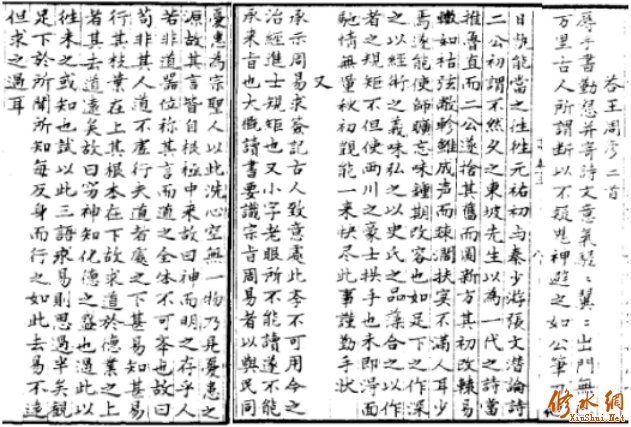 答王周彥二首
辱手書勤懇并寄詩文意氣駸〻翼〻出門無
万里古人所謂斷以不疑鬼神避之如公筆
日孰能當之往往元祐初与秦少游張文潛論詩
二公初謂不然久之東坡先生以為一代之詩當
推魯直而二公遂捨其舊而圖新方其初改轅易
轍如枯弦敝軫雖成聲而疎闊扶矣不滿人耳少
焉遂能使師曠忘味鍾期改容也如足下之作深
之以經術之義味弘之以史氏之品藻合之以作
者之規矩不但使兩川之豪士拱手也未即得面
馳情無量秋初覬能一来快尽此事謹勤手狀
又
承示周易求簽記古人致意處此本不可用令之
治經進士規矩也又小字老眼所不能讀遂不能
承来旨也大概讀書要識宗旨周易者以與民同
憂患為宗聖人以此洗心空無一物乃見憂患之
源故其言皆自根極中来故曰神而明之存乎人
若非道器位祢其言而道之全体不可也故曰
苟非其人道不虛行夫道者處之下甚易知甚易
行其枝葉在上其根本在下故求道於德業之上
者其去道遠矣故曰窮神知化德之盛也過此以
往未之或知也試以此三語求易則思過半矣觀
足下於所聞所知每反身而行之如此去易不遠
但求之過耳
修水網
XiuShui.Net